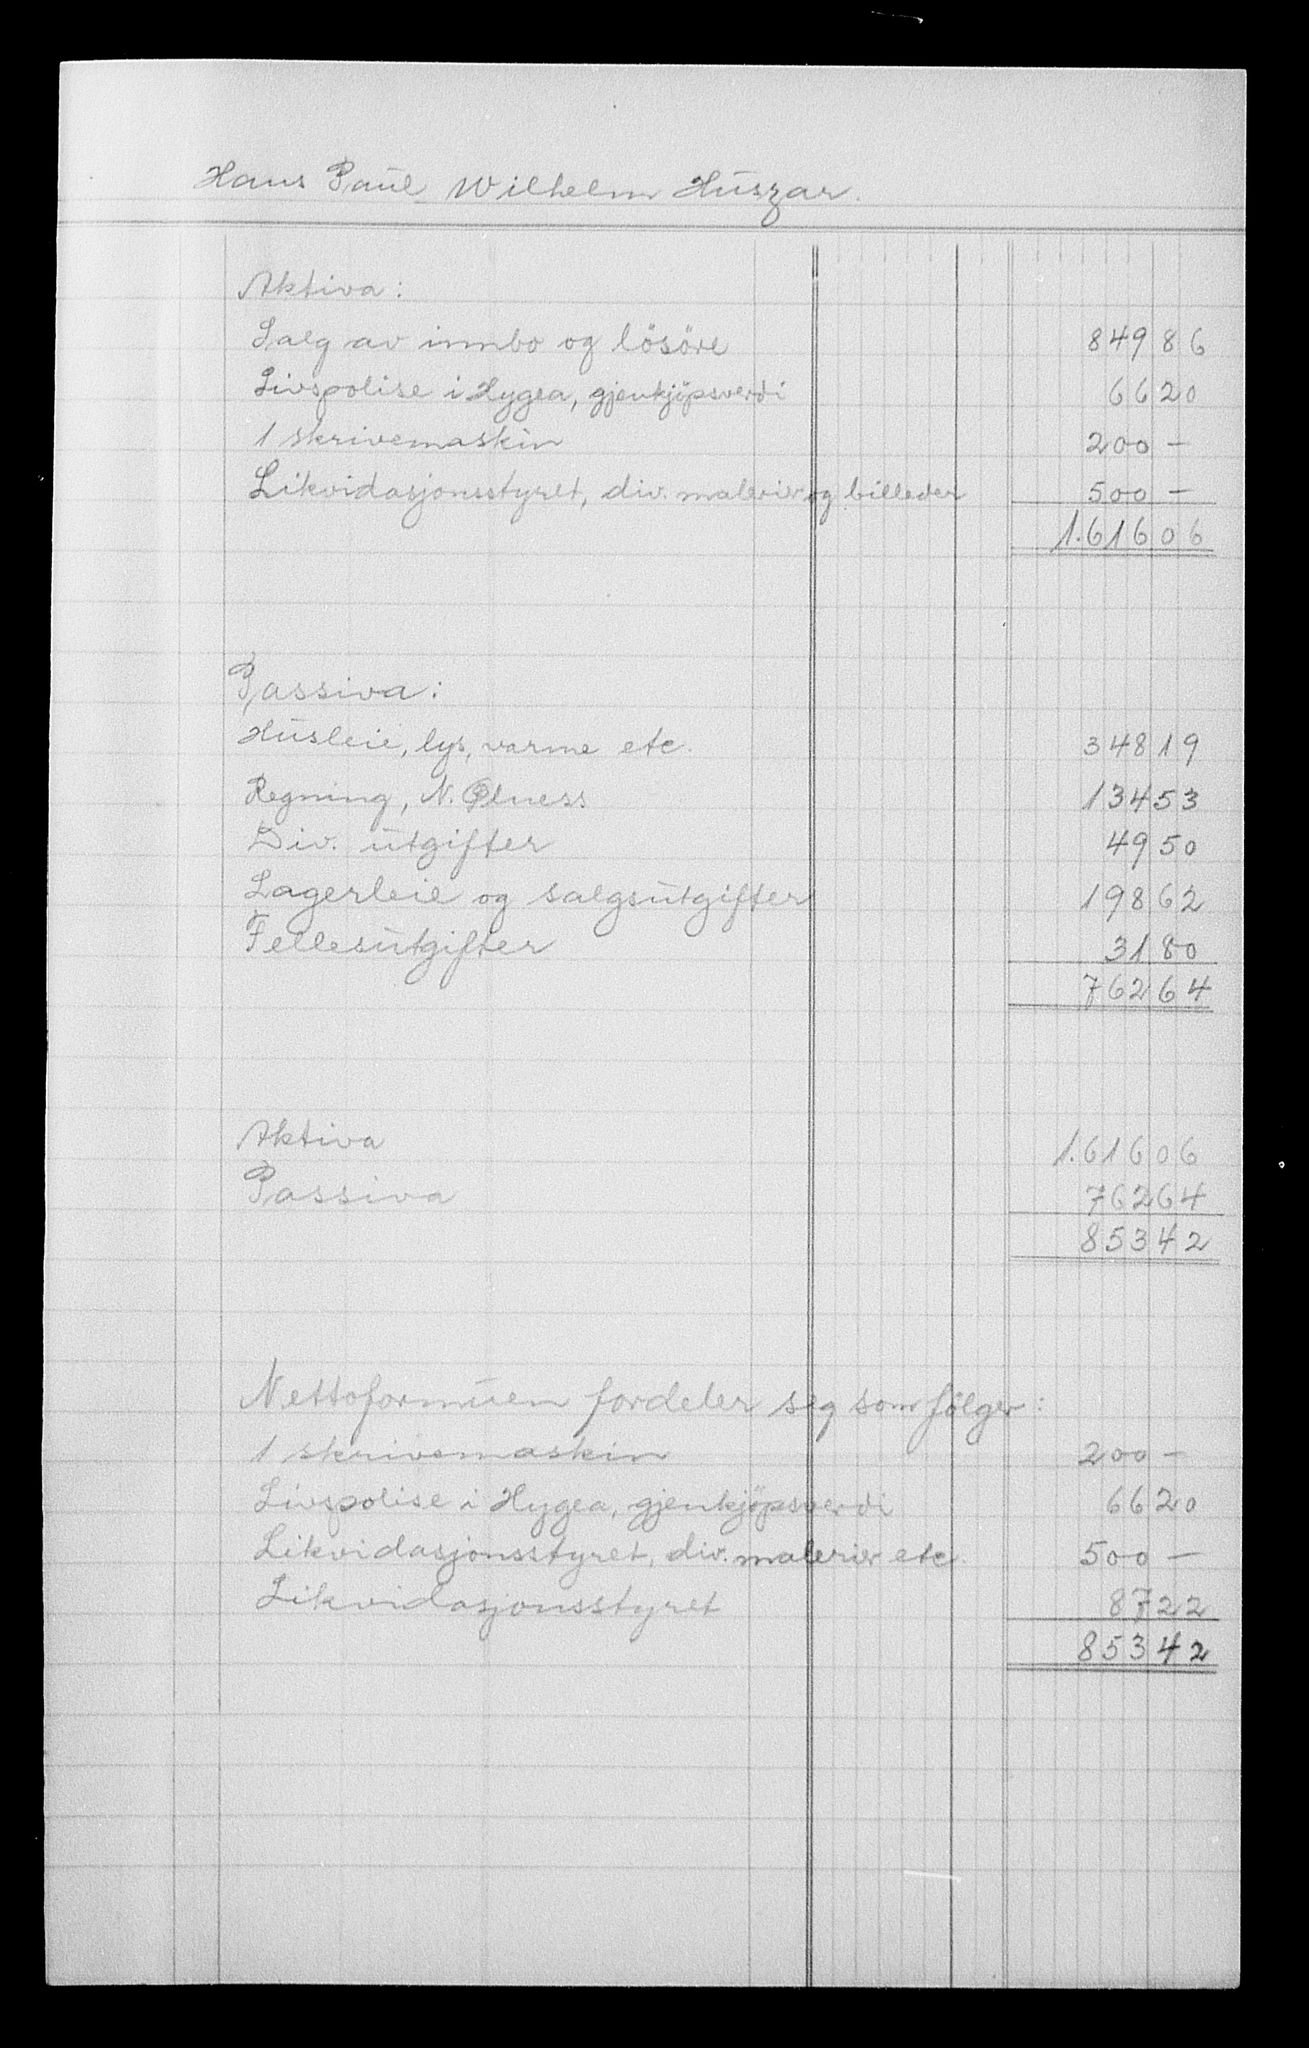 Hans Paul Wilhelm Huszar.
Aktiva:
Salg av innbo og lösöre 849 86
Livspolise i Hygea, gjenkjöpsverdi 66 20
1 skrivemaskin 200 —
Likvidasjonsstyret, div. malerier og billeder 500 —
1.616 06
Passiva:
Husleie, lys, varme etc. 348 19
Regning, N. 134 53
Div. utgifter 49 50
Lagerleie og salgsutgifter 198 62
Fellesutgifter 31 80
762 64
Aktiva 1.616 06
Passiva 762 64
853 42
Nettoformuen fordeler seg som fölger:
1 skrivemaskin 200 —
Livspolise i Hygea, gjenkjöpsverdi 66 20
Likvidasjonsstyret, div. malerier etc. 500 —
Likvidasjonsstyret 87 22
853 42